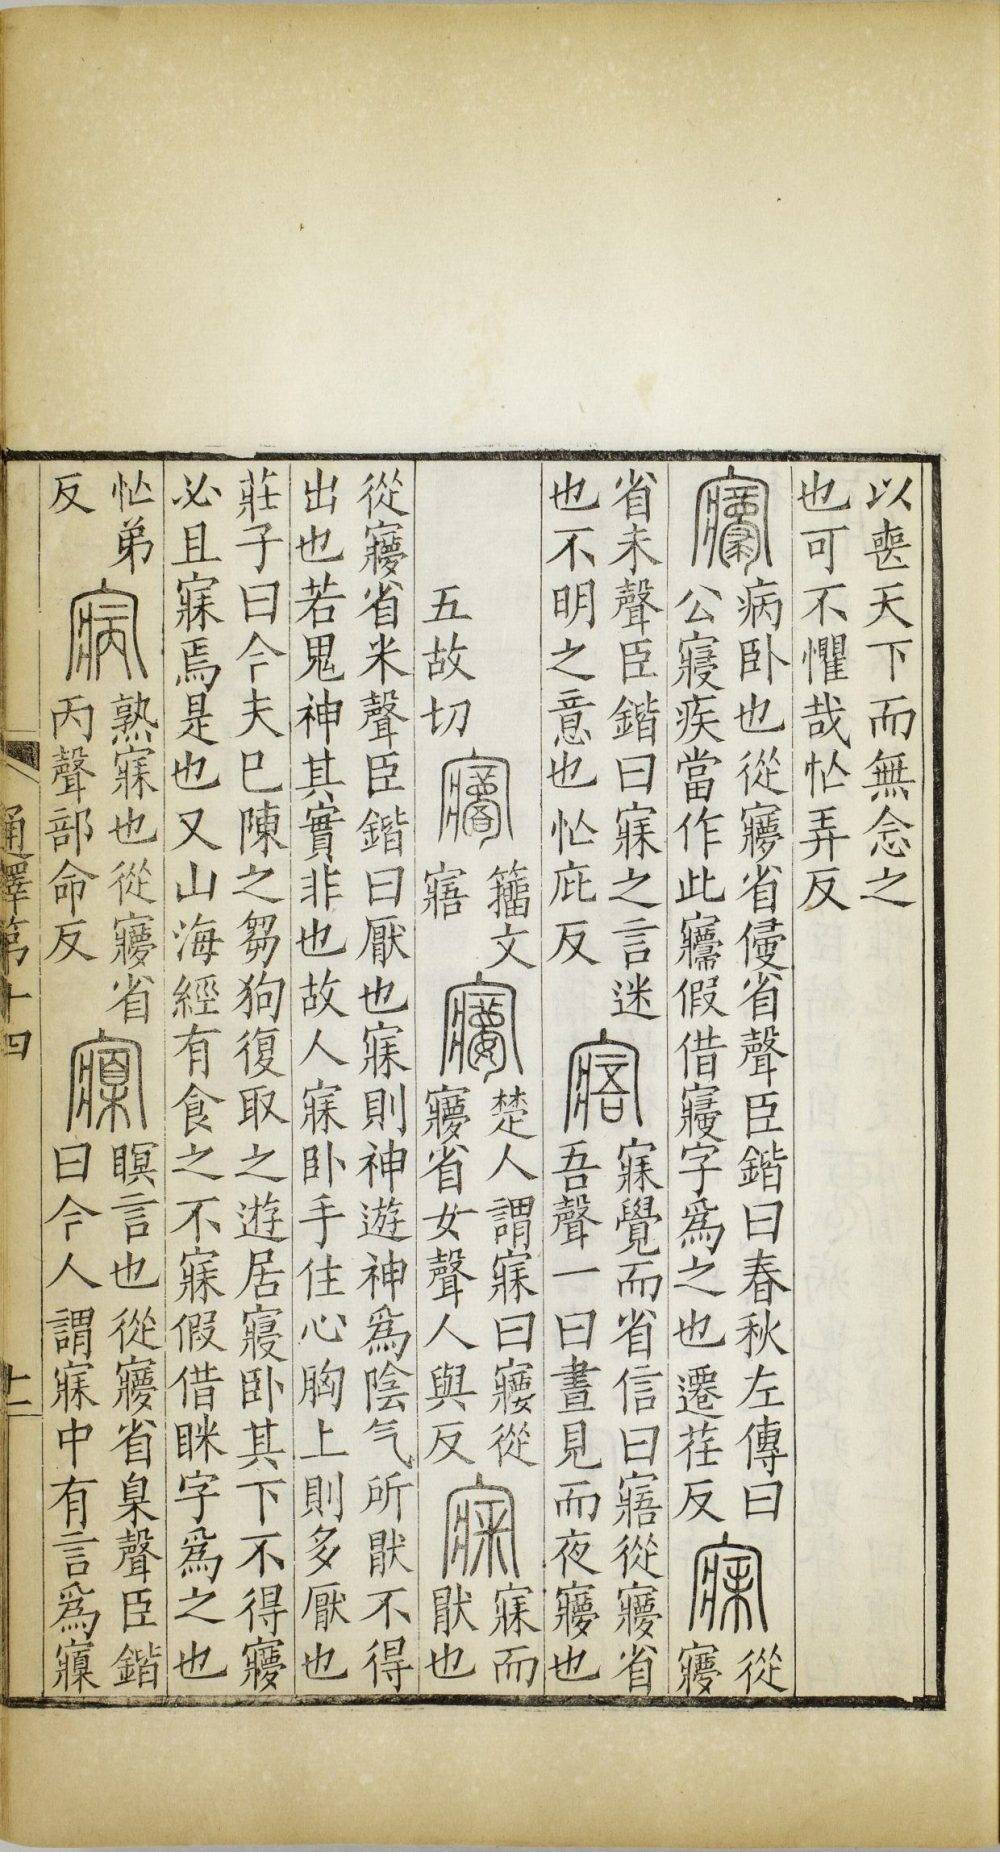 以喪天下而無念之
也可不懼哉忙弄反
𡪢
病卧也從㝱省侵省聲臣鍇曰春秋左傳曰
公寑疾當作此𡪢假借寑字爲之也遷荏反
寐
從㝱
省未聲臣鍇曰寐之言迷
也不明之意也忙庇反
寤
寐覺而省信曰寤從㝱省
吾聲一曰晝見而夜㝱也
五故切
籀文
寤
楚人謂寐曰㝥從
㝱省女聲人與反
寐而
猒也
從㝱省米聲臣鍇曰厭也寐則神遊神爲陰气所猒不得
出也若鬼神其實非也故人寐卧手住心胸上則多厭也
莊子曰今夫已陳之芻狗復取之遊居寑卧其下不得㝱
必且寐焉是也又山海經有食之不寐假借眯字爲之也
忙弟
反
寎
熟寐也從㝱省
丙聲部命反
寱
瞑言也從㝱省臬聲臣鍇
曰今人謂寐中有言爲寱
通釋第十四
十二